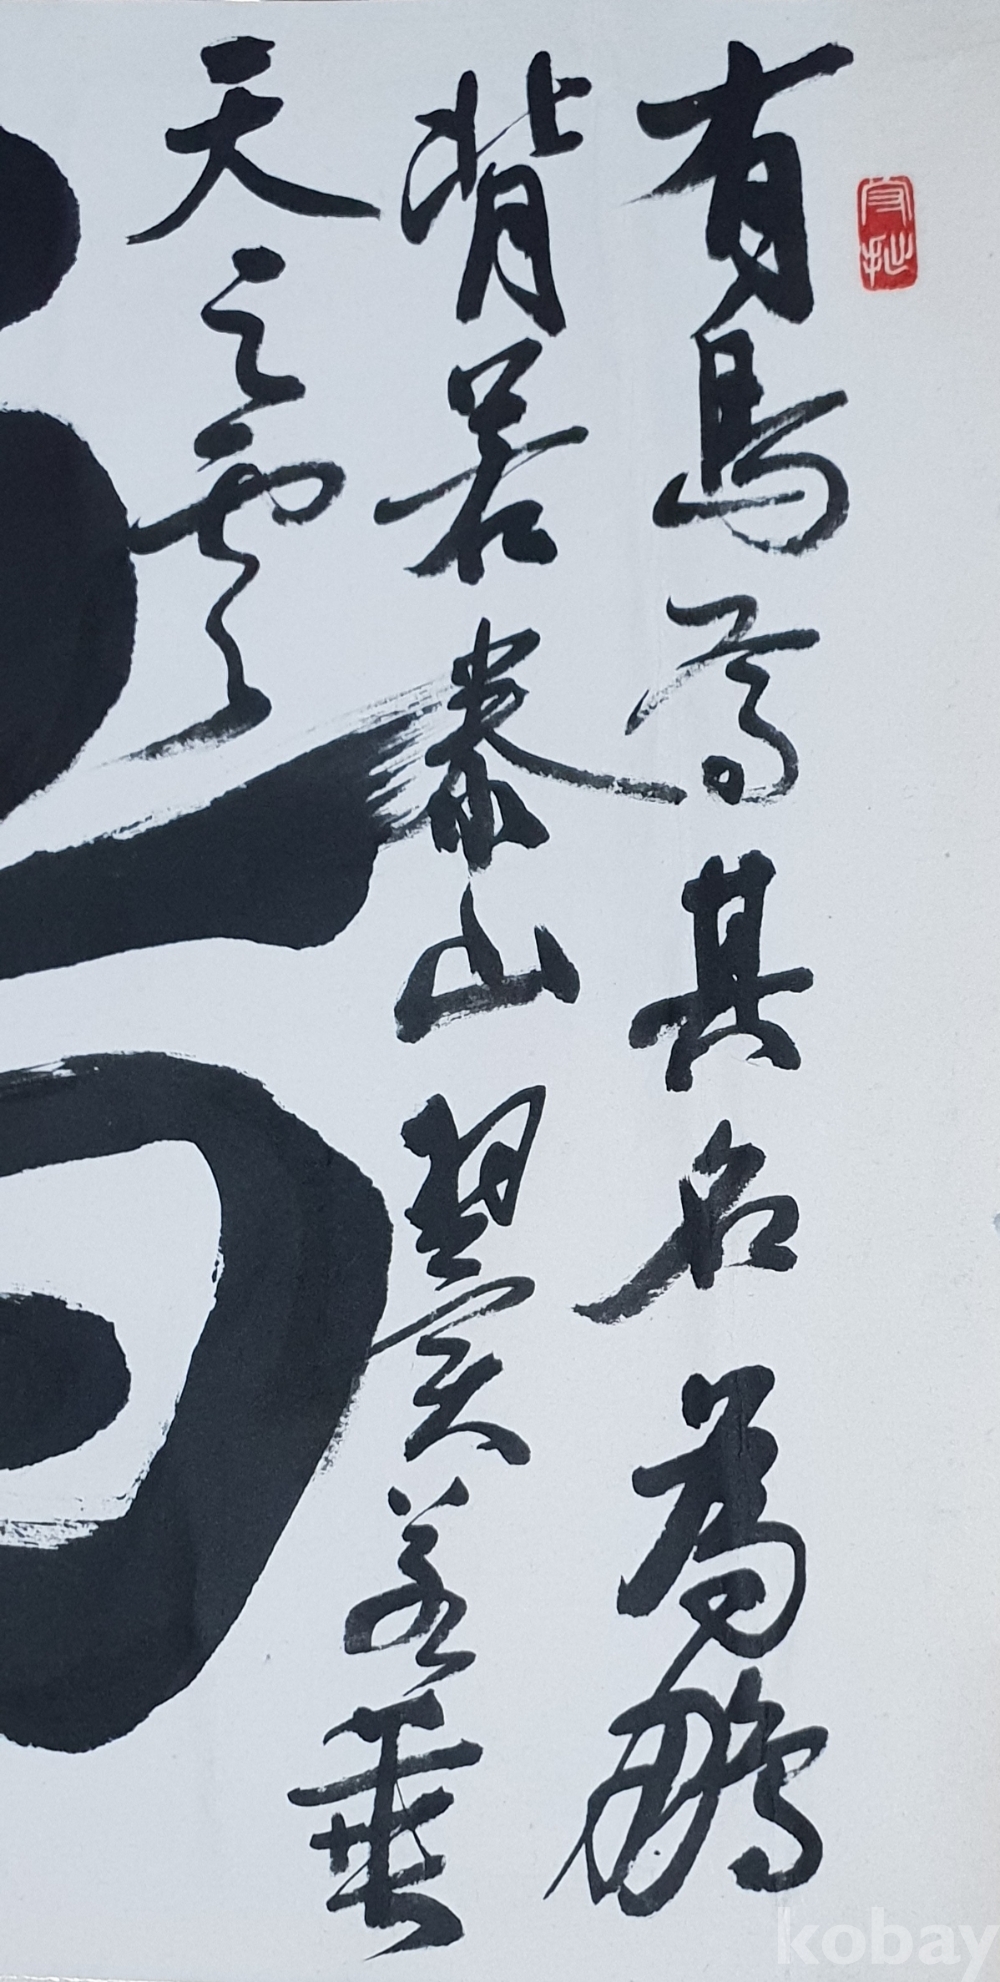 有鳥焉其名為鵬
背若泰山翼若垂
天之雲
守拙
kobay